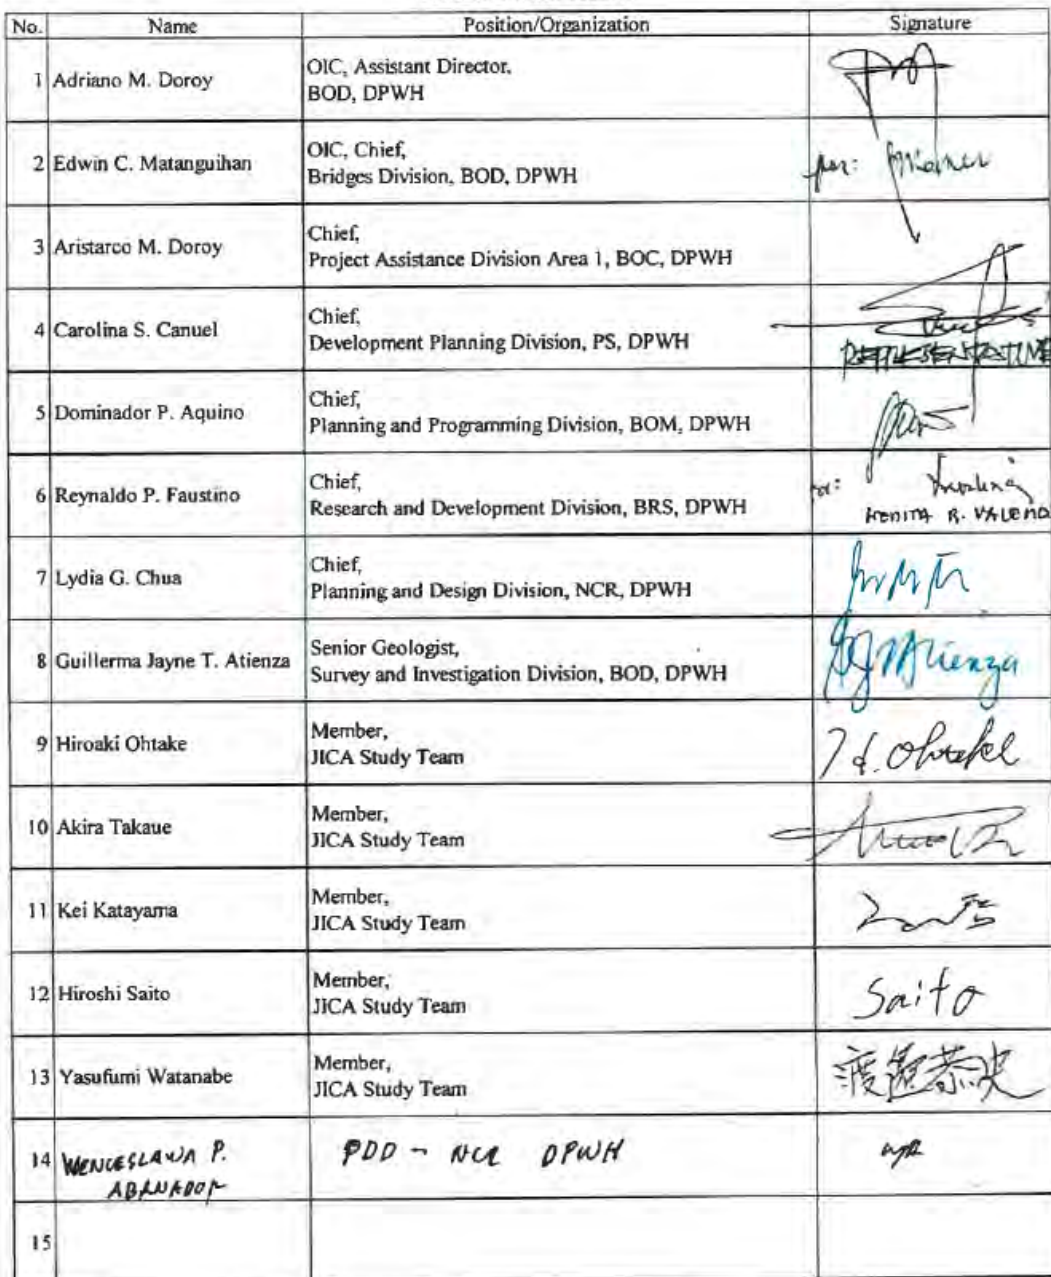 No. Name Position/Organization Signature
1 Adriano M. Doroy OIC, Assistant Director,
BOD, DPWH
2 Edwin C. Matanguihan OIC, Chief,
Bridges Division, BOD, DPWH
per:
3 Aristarco M. Doroy Chief,
Project Assistance Division Area 1, BOC, DPWH
4 Carolina S. Canuel Chief,
Development Planning Division, PS, DPWH
REPRESENTATIVE
5 Dominador P. Aquino Chief,
Planning and Programming Division, BOM, DPWH
6 Reynaldo P. Faustino Chief,
Research and Development Division, BRS, DPWH
7 Lydia G. Chua Chief,
Planning and Design Division, NCR, DPWH
8 Guillerma Jayne T. Atienza Senior Geologist,
Survey and Investigation Division, BOD, DPWH
GJTAtienza
9 Hiroaki Ohtake Member,
JICA Study Team
H. Ohtake
10 Akira Takaue Member,
JICA Study Team
11 Kei Katayama Member,
JICA Study Team
12 Hiroshi Saito Member,
JICA Study Team
Saito
13 Yasufumi Watanabe Member,
JICA Study Team
渡邉恭史
14 WENCESLAWA P. PDD - NCR DPWH
15